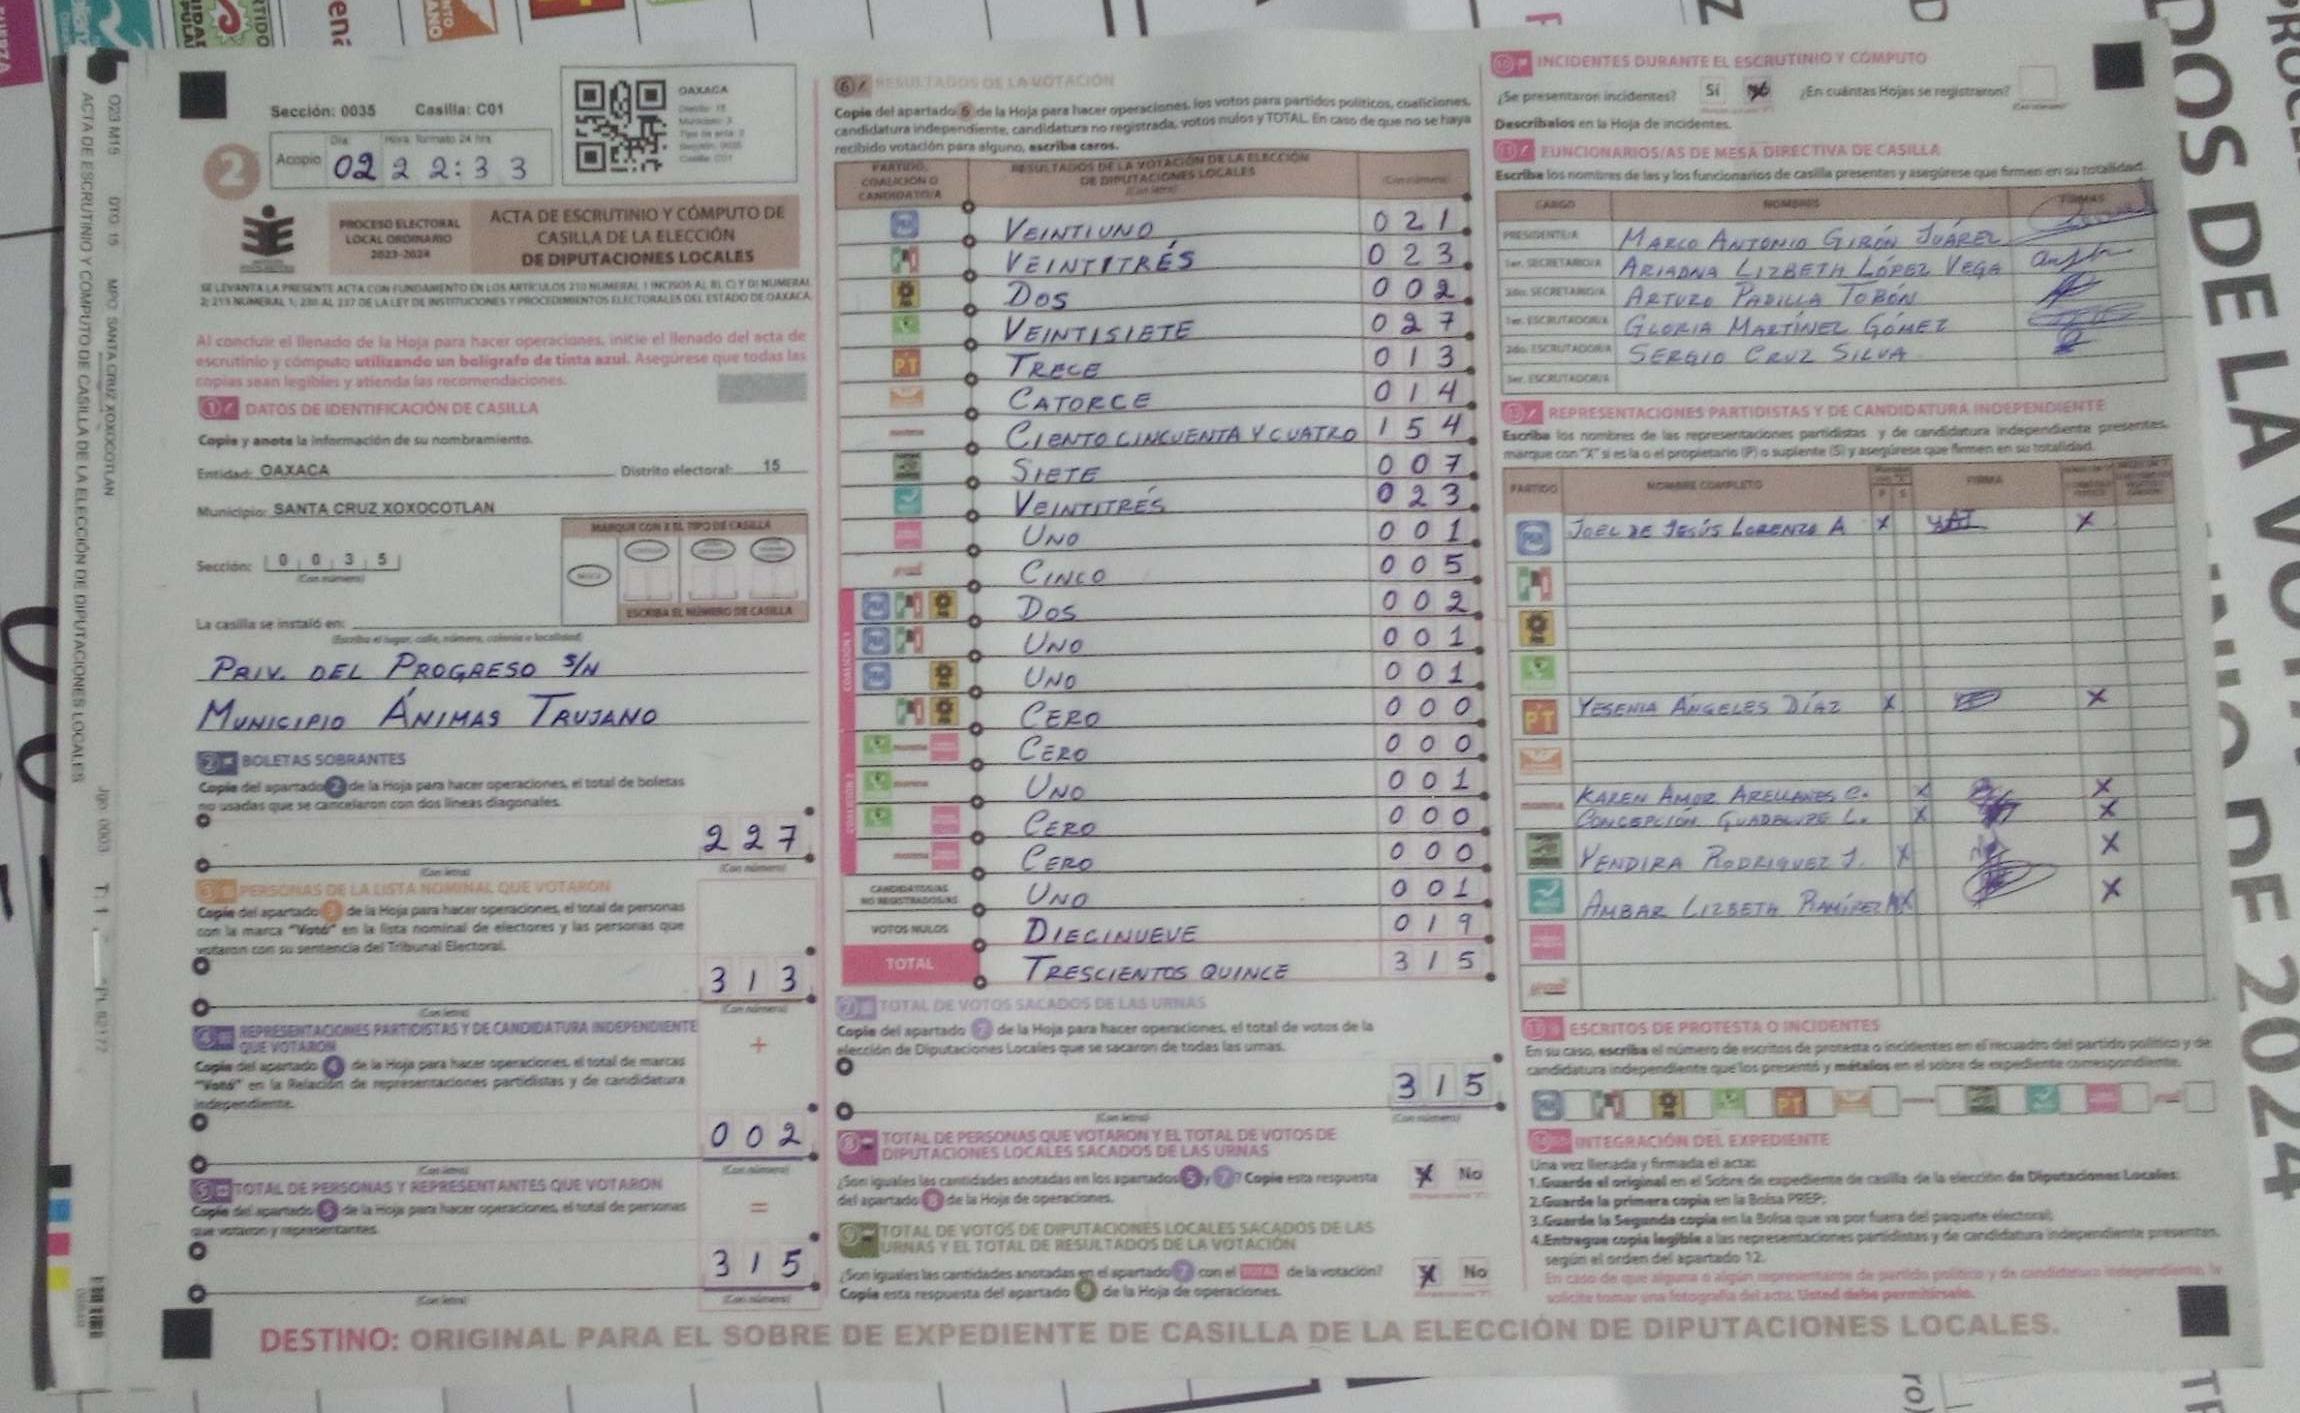 Sección: 0035 Casilla: C01
Día Hora formato 24 hrs
Acopio 02 22:33
2
OAXACA
PROCESO ELECTORAL
LOCAL ORDINARIO
2023-2024
ACTA DE ESCRUTINIO Y CÓMPUTO DE
CASILLA DE LA ELECCIÓN
DE DIPUTACIONES LOCALES
SE LEVANTA LA PRESENTE ACTA CON FUNDAMENTO EN LOS ARTÍCULOS 210 NUMERAL 1 INCISOS A), B), C) Y D) NUMERAL
2; 219 NUMERAL 1; 230 AL 237 DE LA LEY DE INSTITUCIONES Y PROCEDIMIENTOS ELECTORALES DEL ESTADO DE OAXACA.
Al concluir el llenado de la Hoja para hacer operaciones, inicie el llenado del acta de
escrutinio y cómputo utilizando un bolígrafo de tinta azul. Asegúrese que todas las
copias sean legibles y atienda las recomendaciones.
1 DATOS DE IDENTIFICACIÓN DE CASILLA
Copie y anote la información de su nombramiento.
Entidad: OAXACA Distrito electoral: 15
Municipio: SANTA CRUZ XOXOCOTLAN
MARQUE CON X EL TIPO DE CASILLA
Sección: 0 0 3 5
(Con número)
ESCRIBA EL NÚMERO DE CASILLA
La casilla se instaló en:
(Escriba el lugar, calle, número, colonia o localidad)
PRIV. DEL PROGRESO S/N
MUNICIPIO ÁNIMAS TRUJANO
2 BOLETAS SOBRANTES
Copie del apartado 2 de la Hoja para hacer operaciones, el total de boletas
no usadas que se cancelaron con dos líneas diagonales.
227
(Con letra) (Con número)
3 PERSONAS DE LA LISTA NOMINAL QUE VOTARON
Copie del apartado 3 de la Hoja para hacer operaciones, el total de personas
con la marca "Votó" en la lista nominal de electores y las personas que
votaron con su sentencia del Tribunal Electoral.
313
(Con letra) (Con número)
4 REPRESENTACIONES PARTIDISTAS Y DE CANDIDATURA INDEPENDIENTE
QUE VOTARON
+
Copie del apartado 4 de la Hoja para hacer operaciones, el total de marcas
"Votó" en la Relación de representaciones partidistas y de candidatura
independiente.
002
(Con letra) (Con número)
5 TOTAL DE PERSONAS Y REPRESENTANTES QUE VOTARON
=
Copie del apartado 5 de la Hoja para hacer operaciones, el total de personas
que votaron y representantes.
315
(Con letra) (Con número)
6 RESULTADOS DE LA VOTACIÓN
Copie del apartado 6 de la Hoja para hacer operaciones, los votos para partidos políticos, coaliciones,
candidatura independiente, candidatura no registrada, votos nulos y TOTAL. En caso de que no se haya
recibido votación para alguno, escriba ceros.
PARTIDO, COALICIÓN O CANDIDATO/A
RESULTADOS DE LA VOTACIÓN DE LA ELECCIÓN
DE DIPUTACIONES LOCALES
(Con letra) (Con número)
PAN VEINTIUNO 021
PRI VEINTITRÉS 023
DOS 002
VEINTISIETE 027
PT TRECE 013
CATORCE 014
morena CIENTO CINCUENTA Y CUATRO 154
SIETE 007
VEINTITRÉS 023
UNO 001
CINCO 005
COALICIÓN 1
PAN PRI DOS 002
PAN PRI UNO 001
PAN UNO 001
PRI CERO 000
COALICIÓN 2
morena CERO 000
morena UNO 001
CERO 000
morena CERO 000
CANDIDATOS/AS NO REGISTRADOS/AS UNO 001
VOTOS NULOS DIECINUEVE 019
TOTAL TRESCIENTOS QUINCE 315
7 TOTAL DE VOTOS SACADOS DE LAS URNAS
Copie del apartado 7 de la Hoja para hacer operaciones, el total de votos de la
elección de Diputaciones Locales que se sacaron de todas las urnas.
315
(Con letra) (Con número)
8 TOTAL DE PERSONAS QUE VOTARON Y EL TOTAL DE VOTOS DE
DIPUTACIONES LOCALES SACADOS DE LAS URNAS
¿Son iguales las cantidades anotadas en los apartados 5 y 7? Copie esta respuesta
del apartado 8 de la Hoja de operaciones.
X No
9 TOTAL DE VOTOS DE DIPUTACIONES LOCALES SACADOS DE LAS
URNAS Y EL TOTAL DE RESULTADOS DE LA VOTACIÓN
¿Son iguales las cantidades anotadas en el apartado 7 con el TOTAL de la votación?
Copie esta respuesta del apartado 9 de la Hoja de operaciones.
X No
10 INCIDENTES DURANTE EL ESCRUTINIO Y CÓMPUTO
¿Se presentaron incidentes? Sí No ¿En cuántas Hojas se registraron?
(Con número)
Descríbalos en la Hoja de incidentes.
11 FUNCIONARIOS/AS DE MESA DIRECTIVA DE CASILLA
Escriba los nombres de las y los funcionarios de casilla presentes y asegúrese que firmen en su totalidad.
CARGO NOMBRES FIRMAS
PRESIDENTE/A MARCO ANTONIO GIRÓN JUÁREZ
1er. SECRETARIO/A ARIADNA LIZBETH LÓPEZ VEGA
2do. SECRETARIO/A ARTURO PADILLA TOBÓN
1er. ESCRUTADOR/A GLORIA MARTÍNEZ GÓMEZ
2do. ESCRUTADOR/A SERGIO CRUZ SILVA
3er. ESCRUTADOR/A
12 REPRESENTACIONES PARTIDISTAS Y DE CANDIDATURA INDEPENDIENTE
Escriba los nombres de las representaciones partidistas y de candidatura independiente presentes,
marque con "X" si es la o el propietario (P) o suplente (S) y asegúrese que firmen en su totalidad.
PARTIDO NOMBRE COMPLETO P S FIRMA
PAN JOEL DE JESÚS LORENZO A X X
PT YESENIA ÁNGELES DÍAZ X X
morena KAREN AMOR ARELLANES C. X X
CONCEPCIÓN GUADALUPE L. X X
YENDIRA RODRIGUEZ J. X X
AMBAR LIZBETH RAMÍREZ M X X
13 ESCRITOS DE PROTESTA O INCIDENTES
En su caso, escriba el número de escritos de protesta o incidentes en el recuadro del partido político y de
candidatura independiente que los presentó y métalos en el sobre de expediente correspondiente.
14 INTEGRACIÓN DEL EXPEDIENTE
Una vez llenada y firmada el acta:
1.Guarde el original en el Sobre de expediente de casilla de la elección de Diputaciones Locales;
2.Guarde la primera copia en la Bolsa PREP;
3.Guarde la Segunda copia en la Bolsa que va por fuera del paquete electoral;
4.Entregue copia legible a las representaciones partidistas y de candidatura independiente presentes,
según el orden del apartado 12.
En caso de que alguna o algún representante de partido político y de candidatura independiente, le
solicite tomar una fotografía del acta, Usted debe permitírselo.
DESTINO: ORIGINAL PARA EL SOBRE DE EXPEDIENTE DE CASILLA DE LA ELECCIÓN DE DIPUTACIONES LOCALES.
023 M15 DTO 15 MPO SANTA CRUZ XOXOCOTLAN
ACTA DE ESCRUTINIO Y CÓMPUTO DE CASILLA DE LA ELECCIÓN DE DIPUTACIONES LOCALES
DOS DE LA VOTA
DE 2024